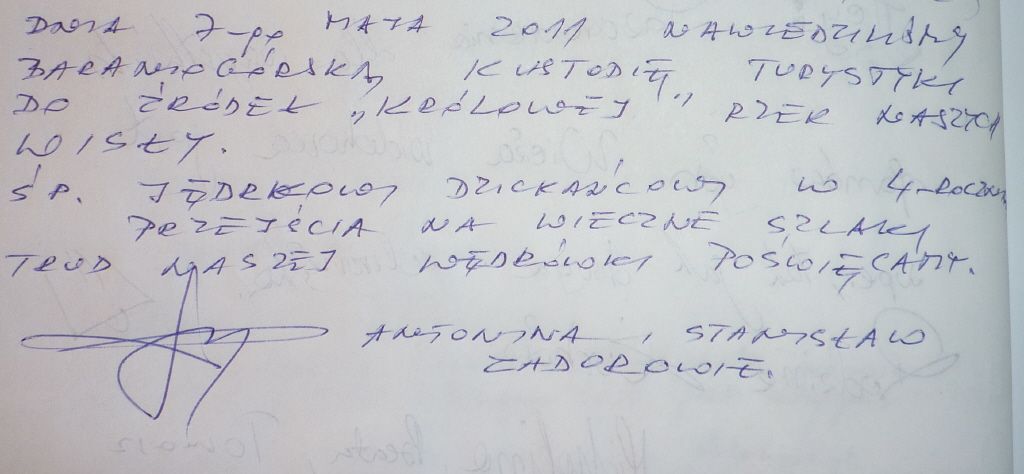 DNIA 7-go MAJA 2011 NAWIEDZILIŚMY
BARANIOGÓRSKĄ KUSTODIĘ TURYSTYKI
DO ŹRÓDEŁ „KRÓLOWEJ” RZEK NASZYCH
WISŁY.
ŚP. JĘDRKOWI DZICKAŃCOWI W 4-ROCZNICĘ
PRZEJŚCIA NA WIECZNE SZLAKI
TRUD NASZEJ WĘDRÓWKI POŚWIĘCAMY.
ANTONINA I STANISŁAW
ZADOROWIE.